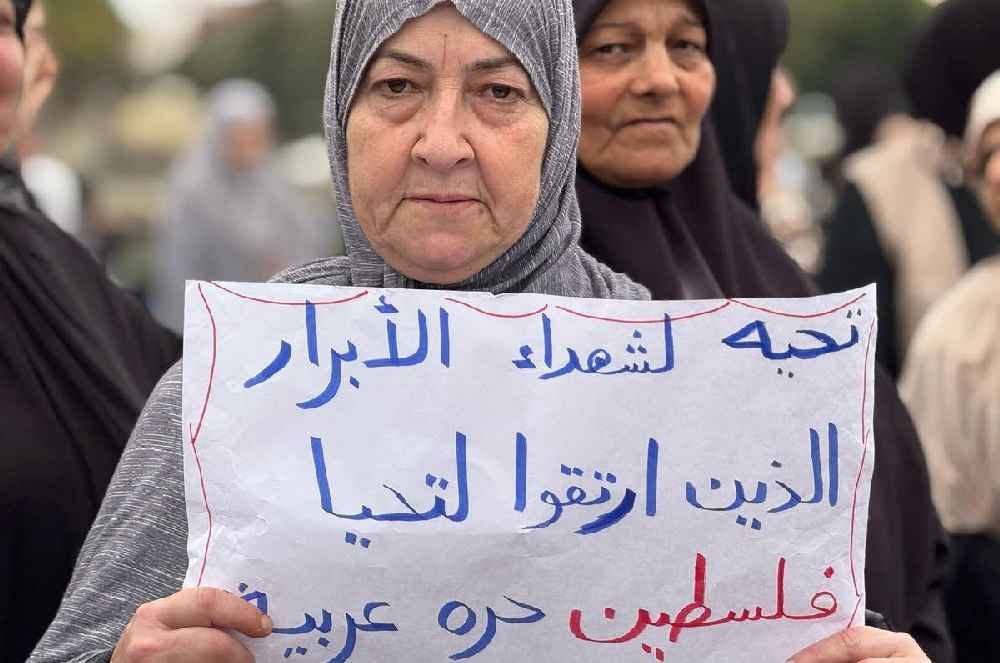 تحيه لشهداء الأبرار
الذين ارتقوا لتحيا
فلسطين حره عربية